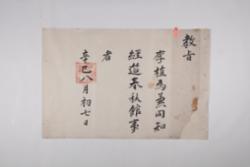 教旨
李植為兼同知
經筵春秋館事
者
辛巳八月初七日